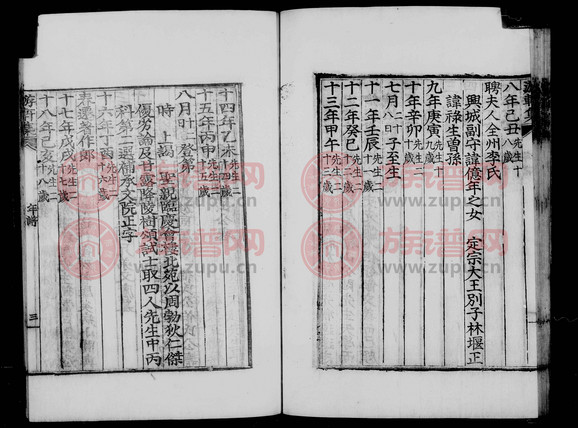 八年己丑 先生十八歲
聘夫人全州李氏
興城副守諱億年之女 定宗大王別子林堰正
諱祿生曾孫
九年庚寅 先生十九歲
十年辛卯 先生二十歲
七月 二十八日 子至生
十一年壬辰 先生二十一歲
十二年癸巳 先生二十二歲
十三年甲午 先生二十三歲
十四年乙未 先生二十四歲
十五年丙申 先生二十五歲
八月 十一日 登第
時 上謁 聖親臨慶會樓北苑以周勃狄仁傑
優劣論及甘露降陵樹頌試士取四人先生中丙
科第二選補承文院正字
十六年丁酉 先生二十六歲
春遷著作郎
十七年戊戌 先生二十七歲
十八年己亥 先生二十八歲
年譜
三
族譜网
www.zupu.cn
族譜网
www.zupu.cn
族譜网
www.zupu.cn
族譜网
www.zupu.cn